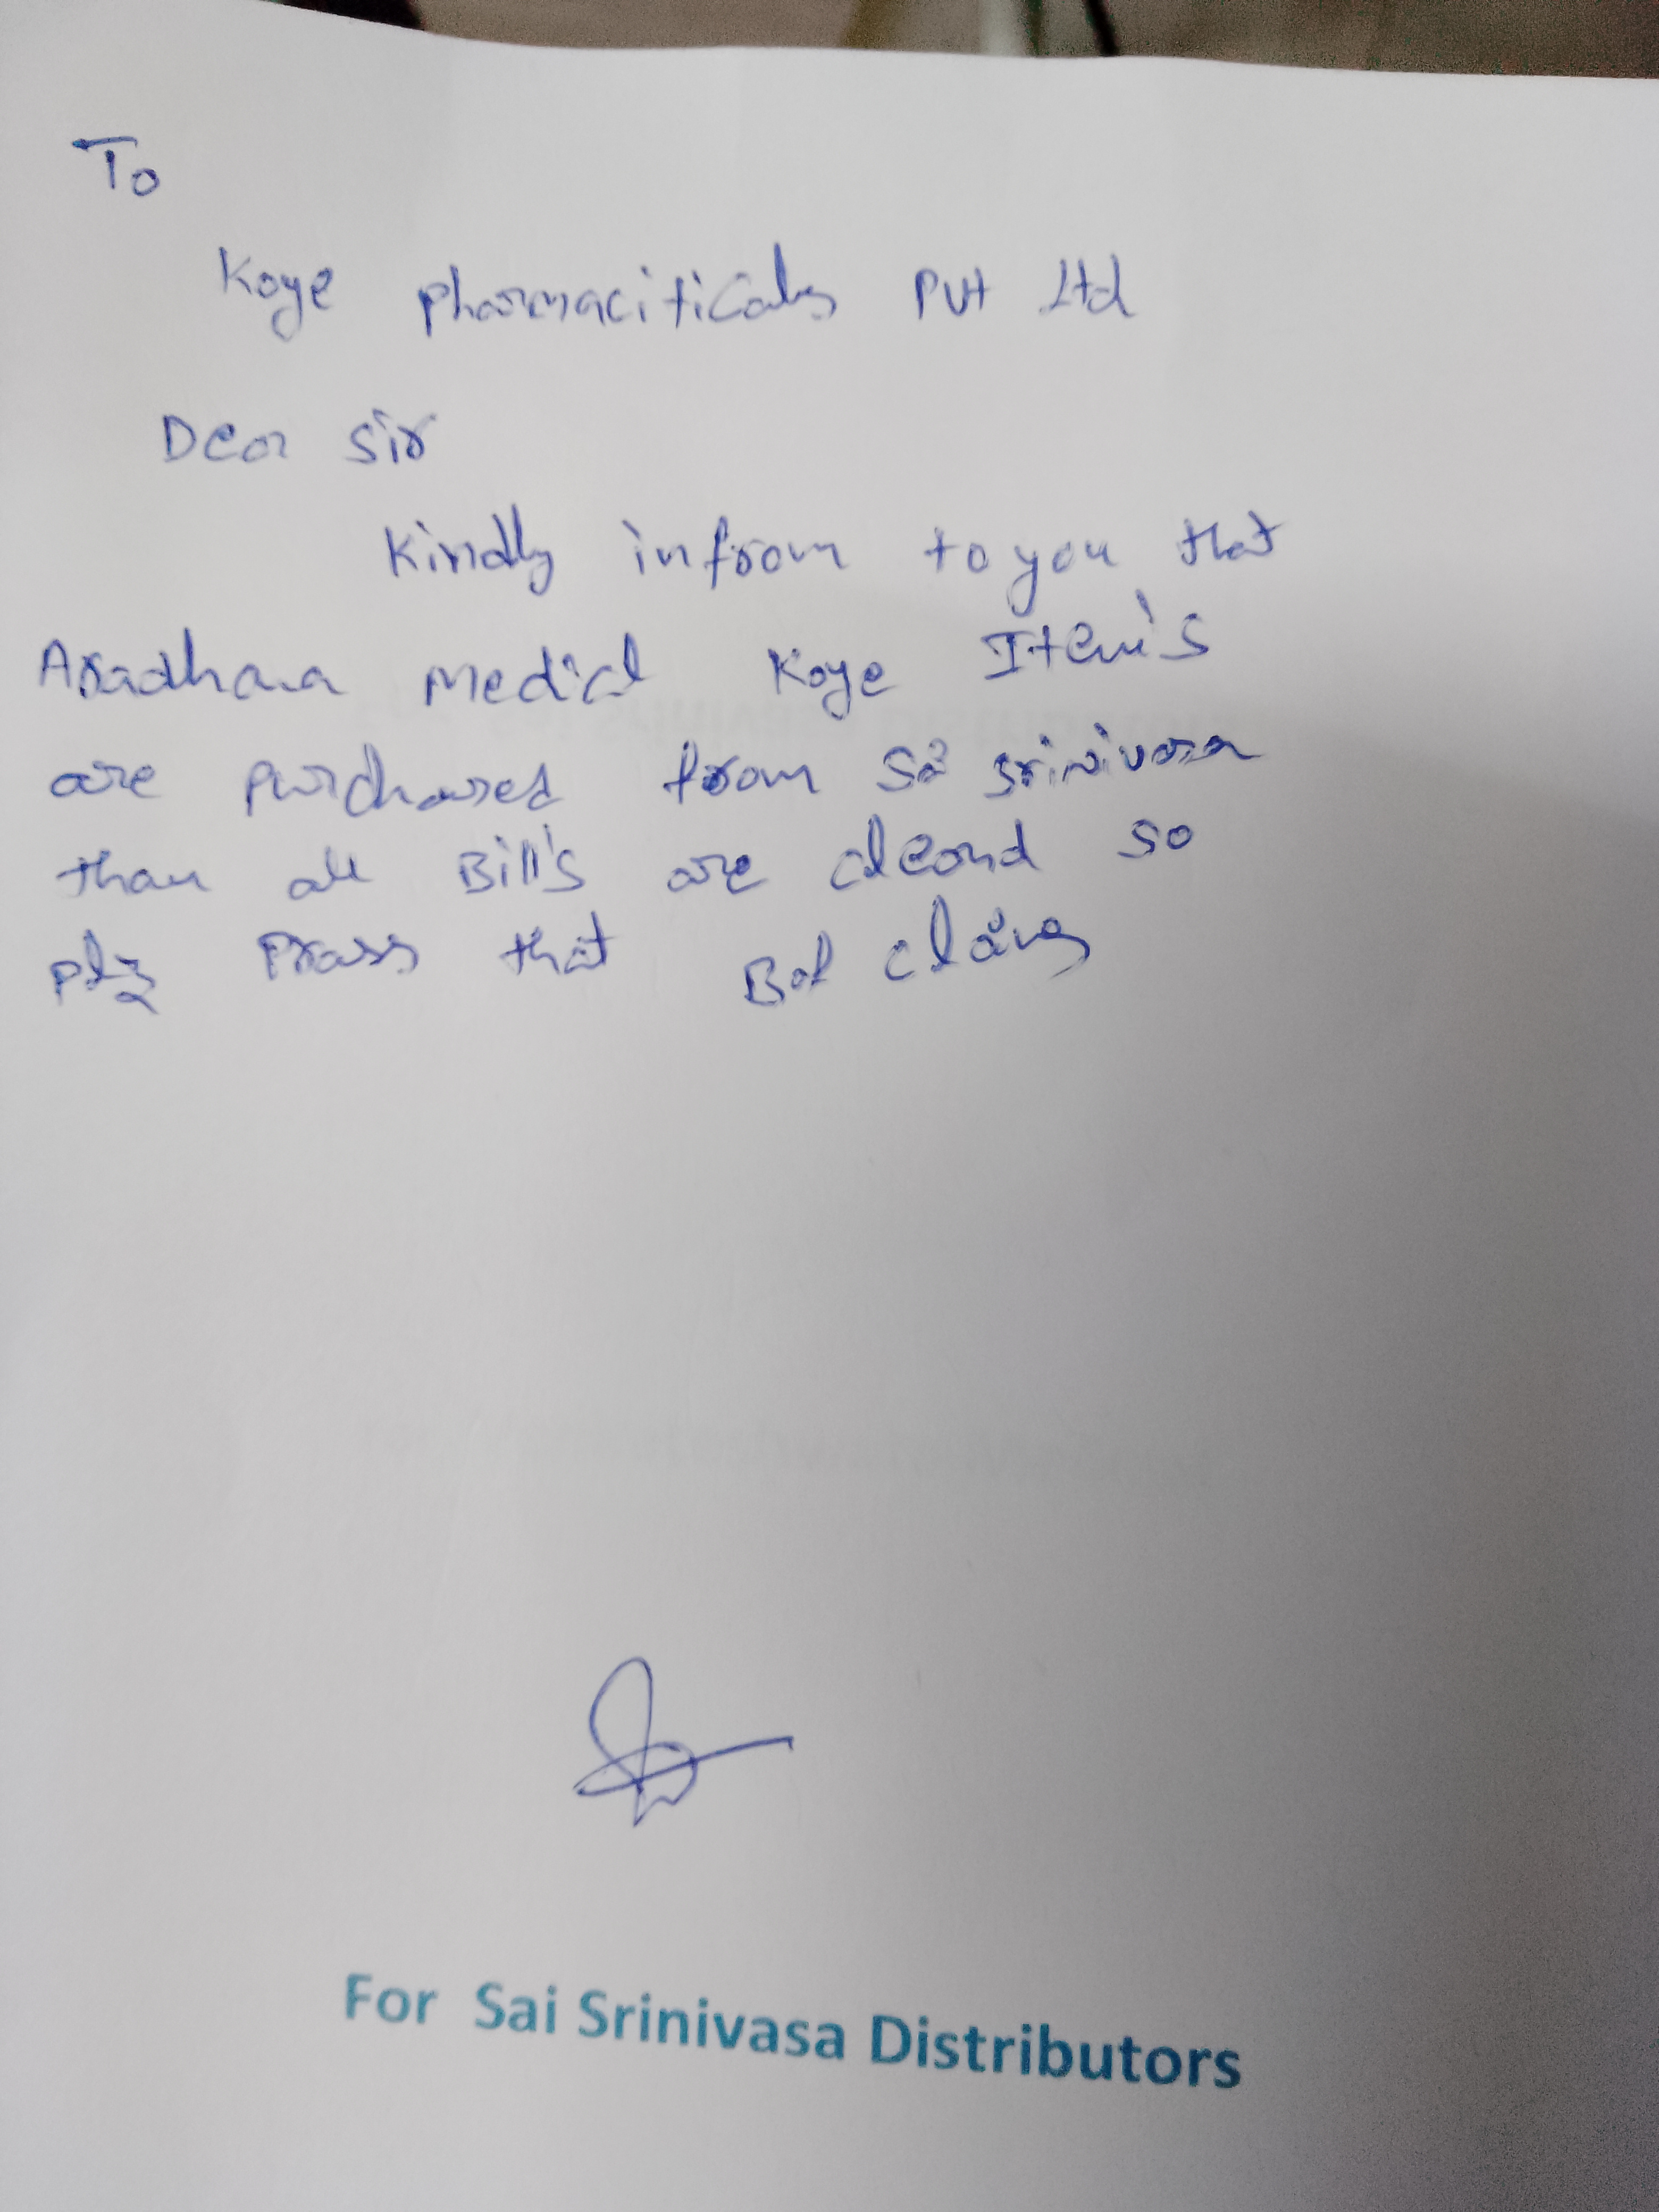 To
Koye pharmaciticals Pvt Ltd
Dear sir
Kindly infrom to you that
Aradhana medical Koye Item's
are purchased from Sai srinivasa
than all Bill's are cleard so
plz Prass that Bal claims
For Sai Srinivasa Distributors